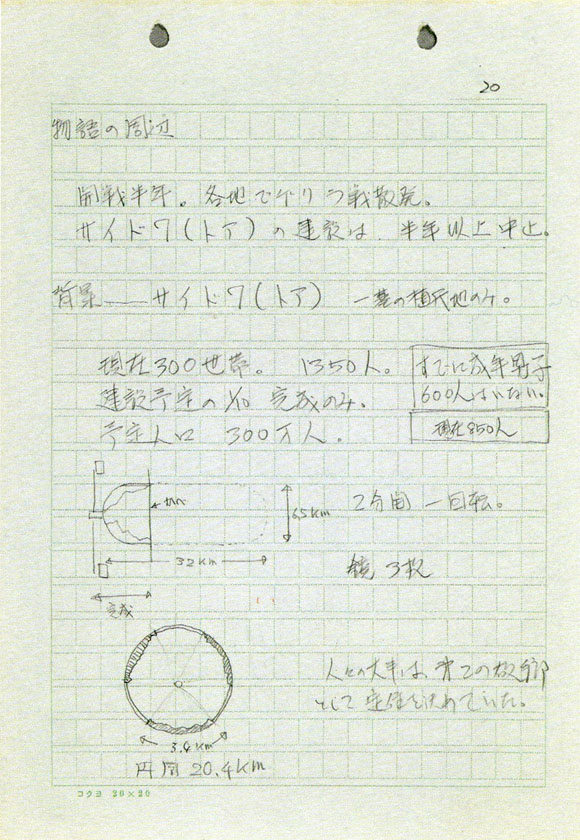 20
物語の周辺
開戦半年。各地でゲリラ戦散発。
サイド7(トア)の建設は、半年以上中止。
背景——サイド7(トア) 一基の植民地のみ。
現在300世帯。 1350人。
すでに成年男子
600人はいない。
建設予定の1/10 完成のみ。
予定人口 300万人。
現在850人
2分間 一回転。
6.5km
32km
鏡 3枚
完成
人々の大半は、第2の故郷
として定住を決めていた。
3.4km
円周 20.4km
コクヨ 20×20